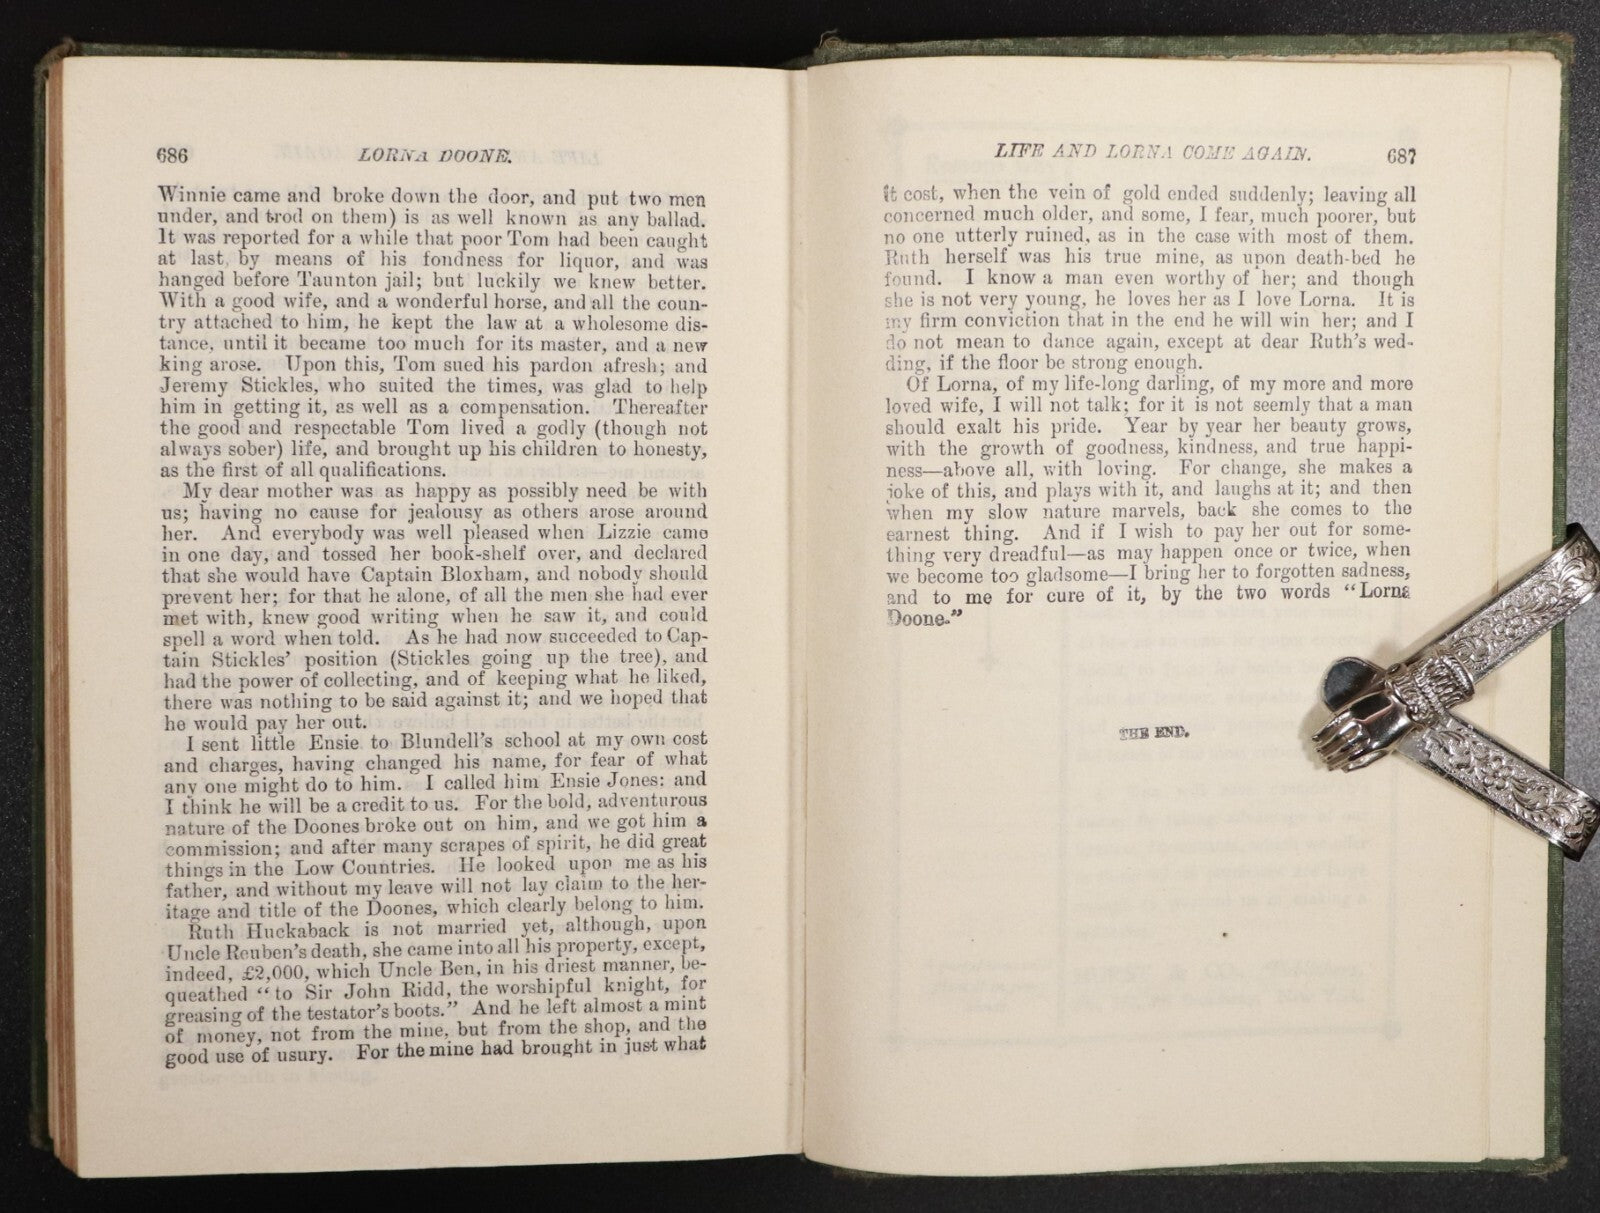 686 LORNA DOONE.
Winnie came and broke down the door, and put two men
under, and trod on them) is as well known as any ballad.
It was reported for a while that poor Tom had been caught
at last, by means of his fondness for liquor, and was
hanged before Taunton jail; but luckily we knew better.
With a good wife, and a wonderful horse, and all the coun-
try attached to him, he kept the law at a wholesome dis-
tance, until it became too much for its master, and a new
king arose. Upon this, Tom sued his pardon afresh; and
Jeremy Stickles, who suited the times, was glad to help
him in getting it, as well as a compensation. Thereafter
the good and respectable Tom lived a godly (though not
always sober) life, and brought up his children to honesty,
as the first of all qualifications.
My dear mother was as happy as possibly need be with
us; having no cause for jealousy as others arose around
her. And everybody was well pleased when Lizzie came
in one day, and tossed her book-shelf over, and declared
that she would have Captain Bloxham, and nobody should
prevent her; for that he alone, of all the men she had ever
met with, knew good writing when he saw it, and could
spell a word when told. As he had now succeeded to Cap-
tain Stickles' position (Stickles going up the tree), and
had the power of collecting, and of keeping what he liked,
there was nothing to be said against it; and we hoped that
he would pay her out.
I sent little Ensie to Blundell's school at my own cost
and charges, having changed his name, for fear of what
any one might do to him. I called him Ensie Jones; and
I think he will be a credit to us. For the bold, adventurous
nature of the Doones broke out on him, and we got him a
commission; and after many scrapes of spirit, he did great
things in the Low Countries. He looked upon me as his
father, and without my leave will not lay claim to the her-
itage and title of the Doones, which clearly belong to him.
Ruth Huckaback is not married yet, although, upon
Uncle Reuben's death, she came into all his property, except,
indeed, £2,000, which Uncle Ben, in his driest manner, be-
queathed "to Sir John Ridd, the worshipful knight, for
greasing of the testator's boots." And he left almost a mint
of money, not from the mine, but from the shop, and the
good use of usury. For the mine had brought in just what
LIFE AND LORNA COME AGAIN. 687
it cost, when the vein of gold ended suddenly; leaving all
concerned much older, and some, I fear, much poorer, but
no one utterly ruined, as in the case with most of them.
Ruth herself was his true mine, as upon death-bed he
found. I know a man even worthy of her; and though
she is not very young, he loves her as I love Lorna. It is
my firm conviction that in the end he will win her; and I
do not mean to dance again, except at dear Ruth's wed-
ding, if the floor be strong enough.
Of Lorna, of my life-long darling, of my more and more
loved wife, I will not talk; for it is not seemly that a man
should exalt his pride. Year by year her beauty grows,
with the growth of goodness, kindness, and true happi-
ness—above all, with loving. For change, she makes a
joke of this, and plays with it, and laughs at it; and then
when my slow nature marvels, back she comes to the
earnest thing. And if I wish to pay her out for some-
thing very dreadful—as may happen once or twice, when
we become too gladsome—I bring her to forgotten sadness,
and to me for cure of it, by the two words "Lorna
Doone."
THE END.